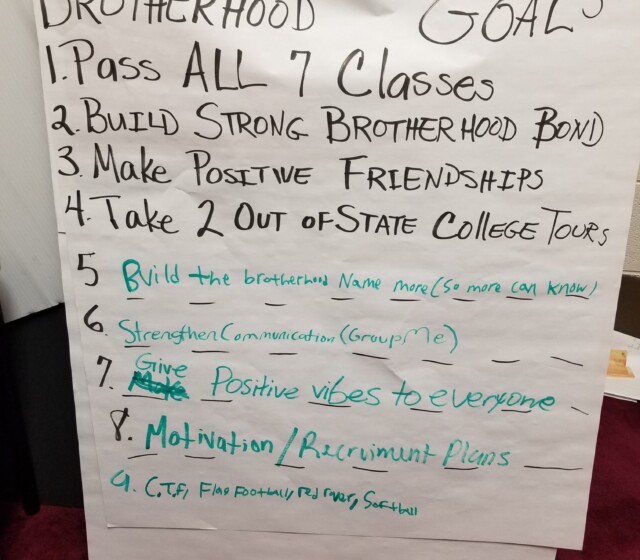 BROTHERHOOD GOALS
1. Pass ALL 7 Classes
2. BUILD STRONG BROTHERHOOD BOND
3. Make POSITIVE FRIENDSHIPS
4. Take 2 OUT OF STATE COllEGE TOURS
5 Build the brotherhood Name more (So more can know)
6. Strengthen Communication (GroupMe)
7. Give Positive vibes to everyone
8. Motivation/Recruiment Plans
9. C.T.F, Flag Football, red rover, Softball